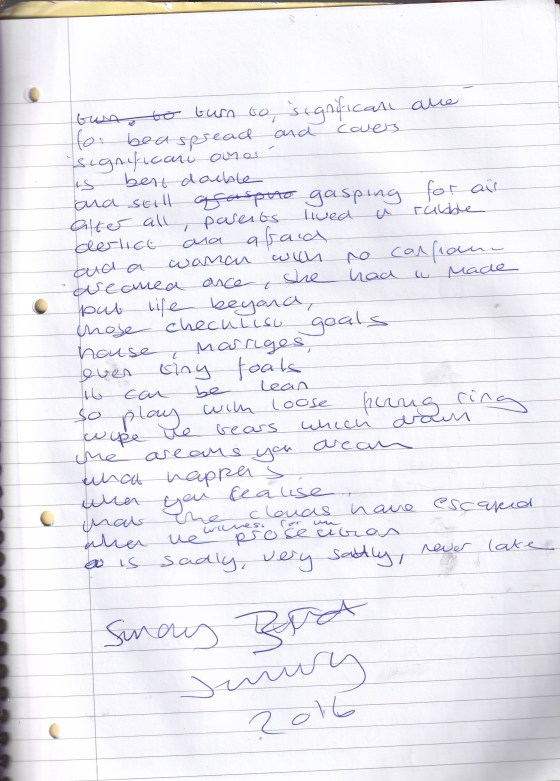 turn, to turn to, 'significant one'
for bedspread and covers
'significant ones'
is bent double
and still gasping gasping for air
after all, parents lived in rubble
derlict and afraid
and a woman with no
dreamed once, she had it made
but life beyond,
those checklist goals
house, marriges,
even tiny foals
it can be lean
so play with loose fitting ring
wipe the tears which drown
the dreams you dream
what happens
when you realise..
that the clouds have escaped
when the witness for the prosecution
is sadly, very sadly, never late
January
2016